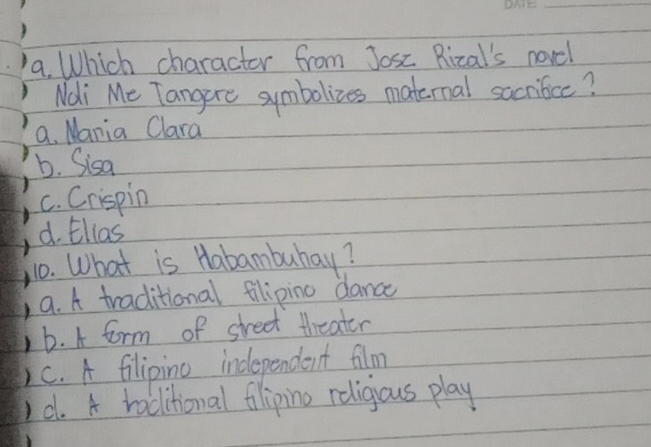 DATE
9. Which character from Jose Rizal's novel
Noli Me Tangere symbolizes maternal sacrifice?
a. Maria Clara
b. Sisa
c. Crispin
d. Elias
10. What is Habambuhay?
a. A traditional filipino dance
b. A form of street theater
c. A filipino independent film
d. A traditional filipino religious play